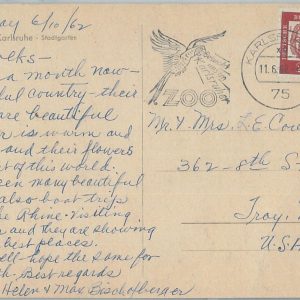 ay 6/10/62
Karlsruhe - Stadtgarten
olks -
a month now -
ful country - their
are beautiful
er is warm and
and their flowers
t of this world.
een many beautiful
also boat trips
the Rhine. Visiting
er and they are showing
best places.
ell hope the same for
th. Best regards
Helen & Max Bischofberger
ZOO
KARLSRUHE
11.6.
75
Mr. & Mrs. L. E. Cou
362 - 8th S
Troy,
U.S.A